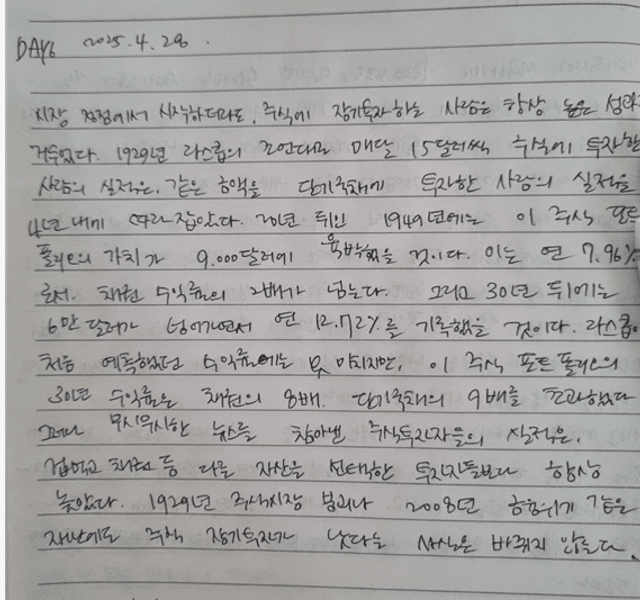 DAY6 2025.4.28.
시장 정점에서 시작하더라도, 주식에 장기투자하는 사람은 항상 높은 성과
거두었다. 1929년 라스콥의 조언대로 매달 15달러씩 주식에 투자한
사람의 실적은, 같은 금액을 단기국채에 투자한 사람의 실적을
4년 내에 따라잡았다. 20년 뒤인 1949년에는 이 주식 포트
폴리오의 가치가 9,000달러에 육박했을 것이다. 이는 연 7.96%
로서, 채권 수익률의 2배가 넘는다. 그리고 30년 뒤에는
6만 달러가 넘어가면서 연 12.72%를 기록했을 것이다. 라스콥이
처음 예측했던 수익률에는 못 미치지만, 이 주식 포트폴리오의
30년 수익률은 채권의 8배. 단기국채의 9배를 초과했다
그러나 무시무시한 뉴스를 참아낸 주식투자자들의 실적은,
겁먹고 채권 등 다른 자산을 선택한 투자자들보다 항상
높았다. 1929년 주식시장 붕괴나 2008년 금융위기 같은
재난에도 주식 장기투자가 낫다는 사실은 바뀌지 않는다.